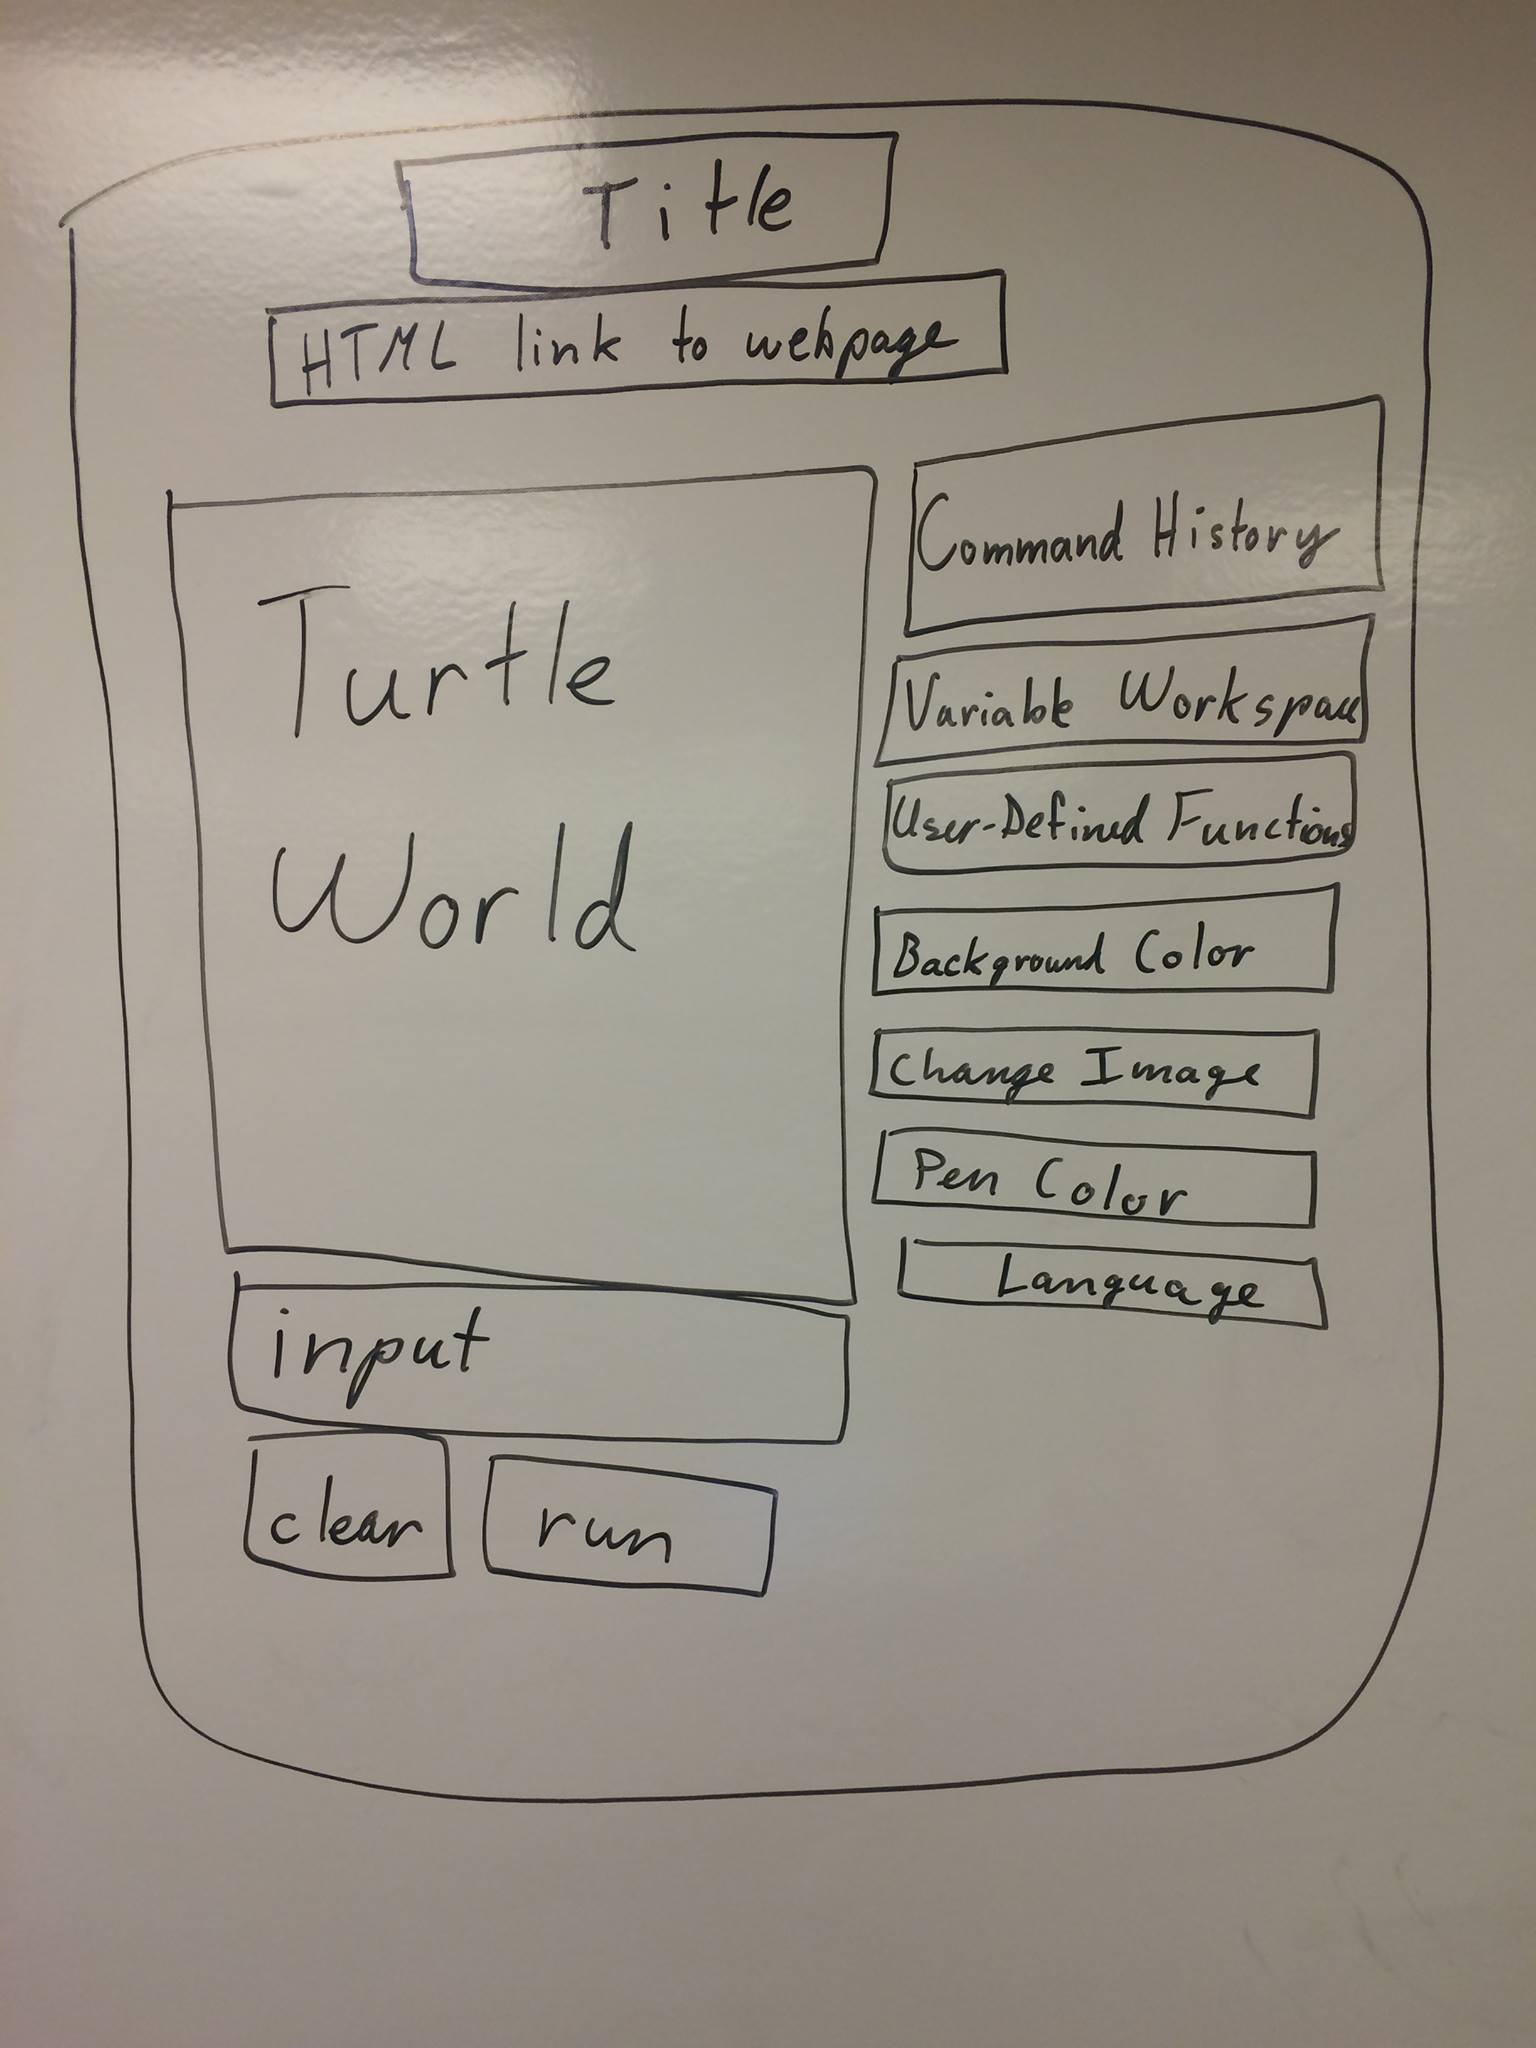 Title
HTML link to webpage
Turtle
World
input
clear run
Command History
Variable Workspace
User-Defined Functions
Background Color
Change Image
Pen Color
Language